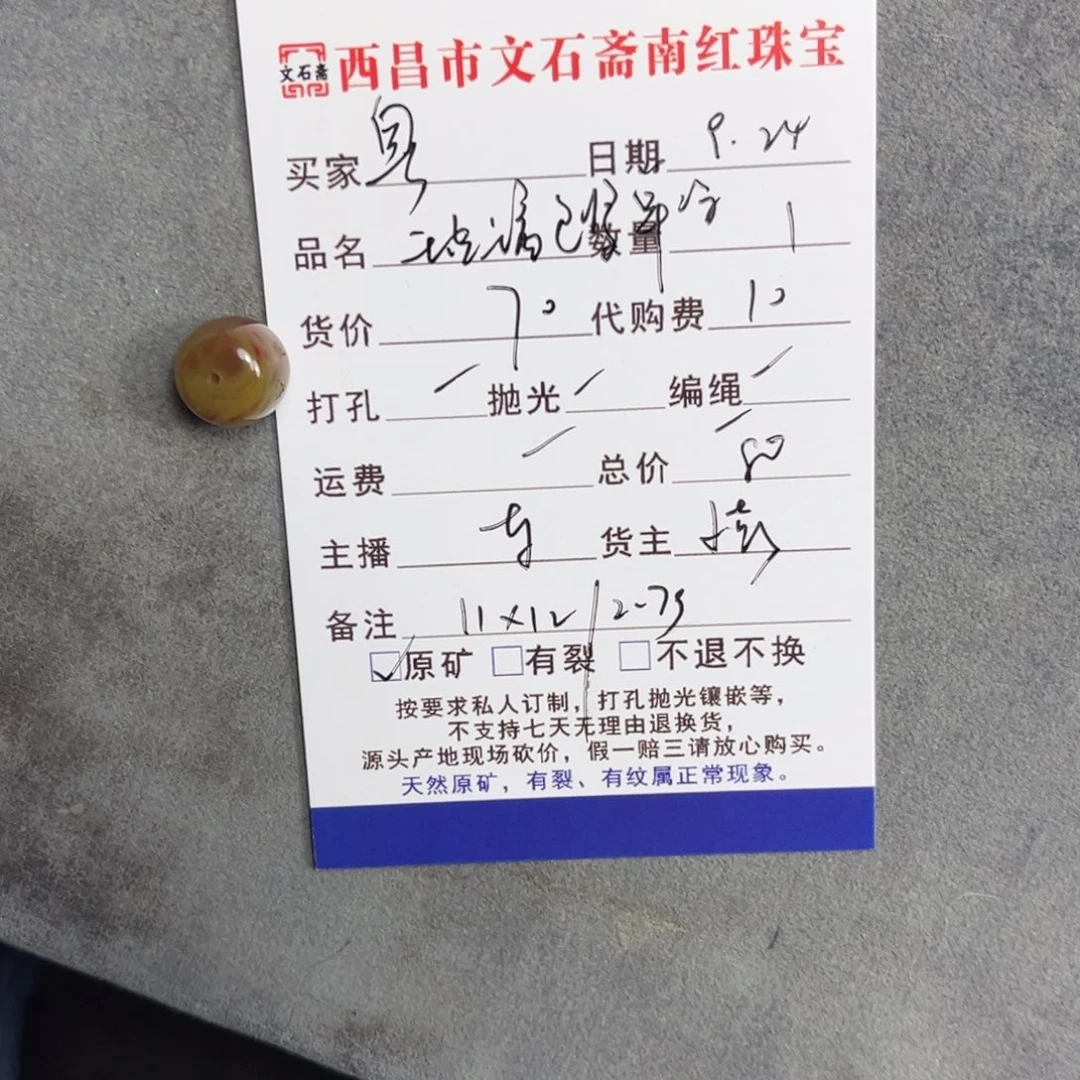 文石斋 西昌市文石斋南红珠宝
买家 日期 9.24
品名 数量 1
货价 70 代购费 10
打孔 / 抛光 / 编绳 /
运费 / 总价 80
主播 货主
备注 11×12/2-73
☑原矿 □有裂 □不退不换
按要求私人订制,打孔抛光镶嵌等,
不支持七天无理由退换货,
源头产地现场砍价,假一赔三请放心购买。
天然原矿,有裂、有纹属正常现象。